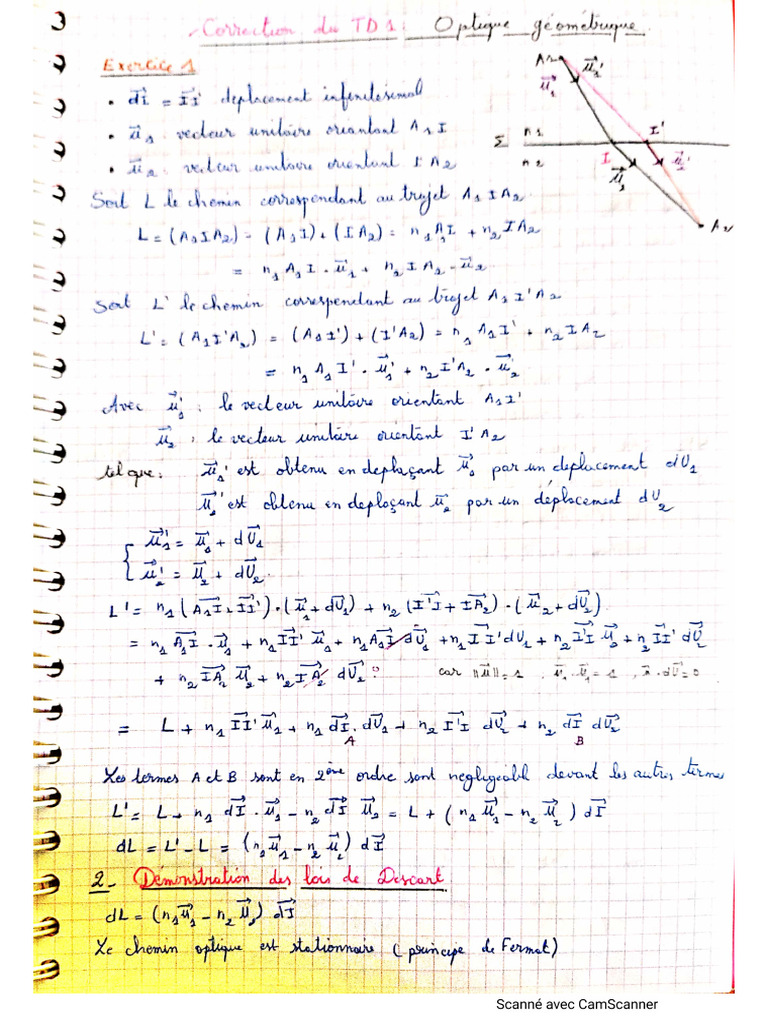 Correction du TD1: Optique géométrique.
Exercice 1
• d⃗I = I⃗I' deplacement infinitesimal
• u⃗1 vecteur unitaire oriantant A1I
• u⃗2: vecteur unitaire orientant I'A2
A1 u⃗1' u⃗1
Σ n1 I'
n2 I u⃗2'
u⃗2
A2
Soit L le chemin correspondant au trajet A1IA2
L = (A1IA2) = (A1I) + (IA2) = n1 A1I + n2 IA2
= n1 A1I · u⃗1 + n2 IA2 · u⃗2
Soit L' le chemin correspondant au trajet A1I'A2
L' = (A1I'A2) = (A1I') + (I'A2) = n1 A1I' + n2 IA2
= n1 A1I' · u⃗1' + n2 I'A2 · u⃗2'
Avec u⃗1' : le vecteur unitaire orientant A1I'
u⃗2 : le vecteur unitaire orientant I'A2
tel que: u⃗1' est obtenu en deplaçant u⃗1 par un deplacement dU1
u⃗2' est obtenu en deplaçant u⃗2 par un déplacement dU2
{ u⃗1' = u⃗1 + dU⃗1
u⃗2' = u⃗2 + dU⃗2
L' = n1 (A⃗1I + I⃗I') · (u⃗1 + dU⃗1) + n2 (I⃗'I + I⃗A2) · (u⃗2 + dU⃗2)
= n1 A⃗1I · u⃗1 + n1 I⃗I' u⃗1 + n1 A⃗1I dU⃗1 + n1 I⃗I' dU1 + n2 I⃗'I u⃗2 + n2 I⃗I' dU⃗2
+ n2 I⃗A2 u⃗2 + n2 I⃗A2 dU⃗2 car ||u⃗|| = 1, u⃗1 · u⃗1 = 1, u⃗ · dU⃗ = 0
= L + n1 I⃗I' u⃗1 + n1 d⃗I · dU⃗1 + n2 I⃗'I dU⃗2 + n2 d⃗I dU⃗2
A B
Les termes A et B sont en 2ème ordre sont negligeabl devant les autres termes
L' = L + n1 d⃗I · u⃗1 - n2 d⃗I u⃗2 = L + (n1 u⃗1 - n2 u⃗2) d⃗I
dL = L' - L = (n1 u⃗1 - n2 u⃗2) d⃗I
2- Démonstration des lois de Descart
dL = (n1 u⃗1 - n2 u⃗2) d⃗I
Le chemin optique est stationnaire (principe de Fermat)
Scanné avec CamScanner